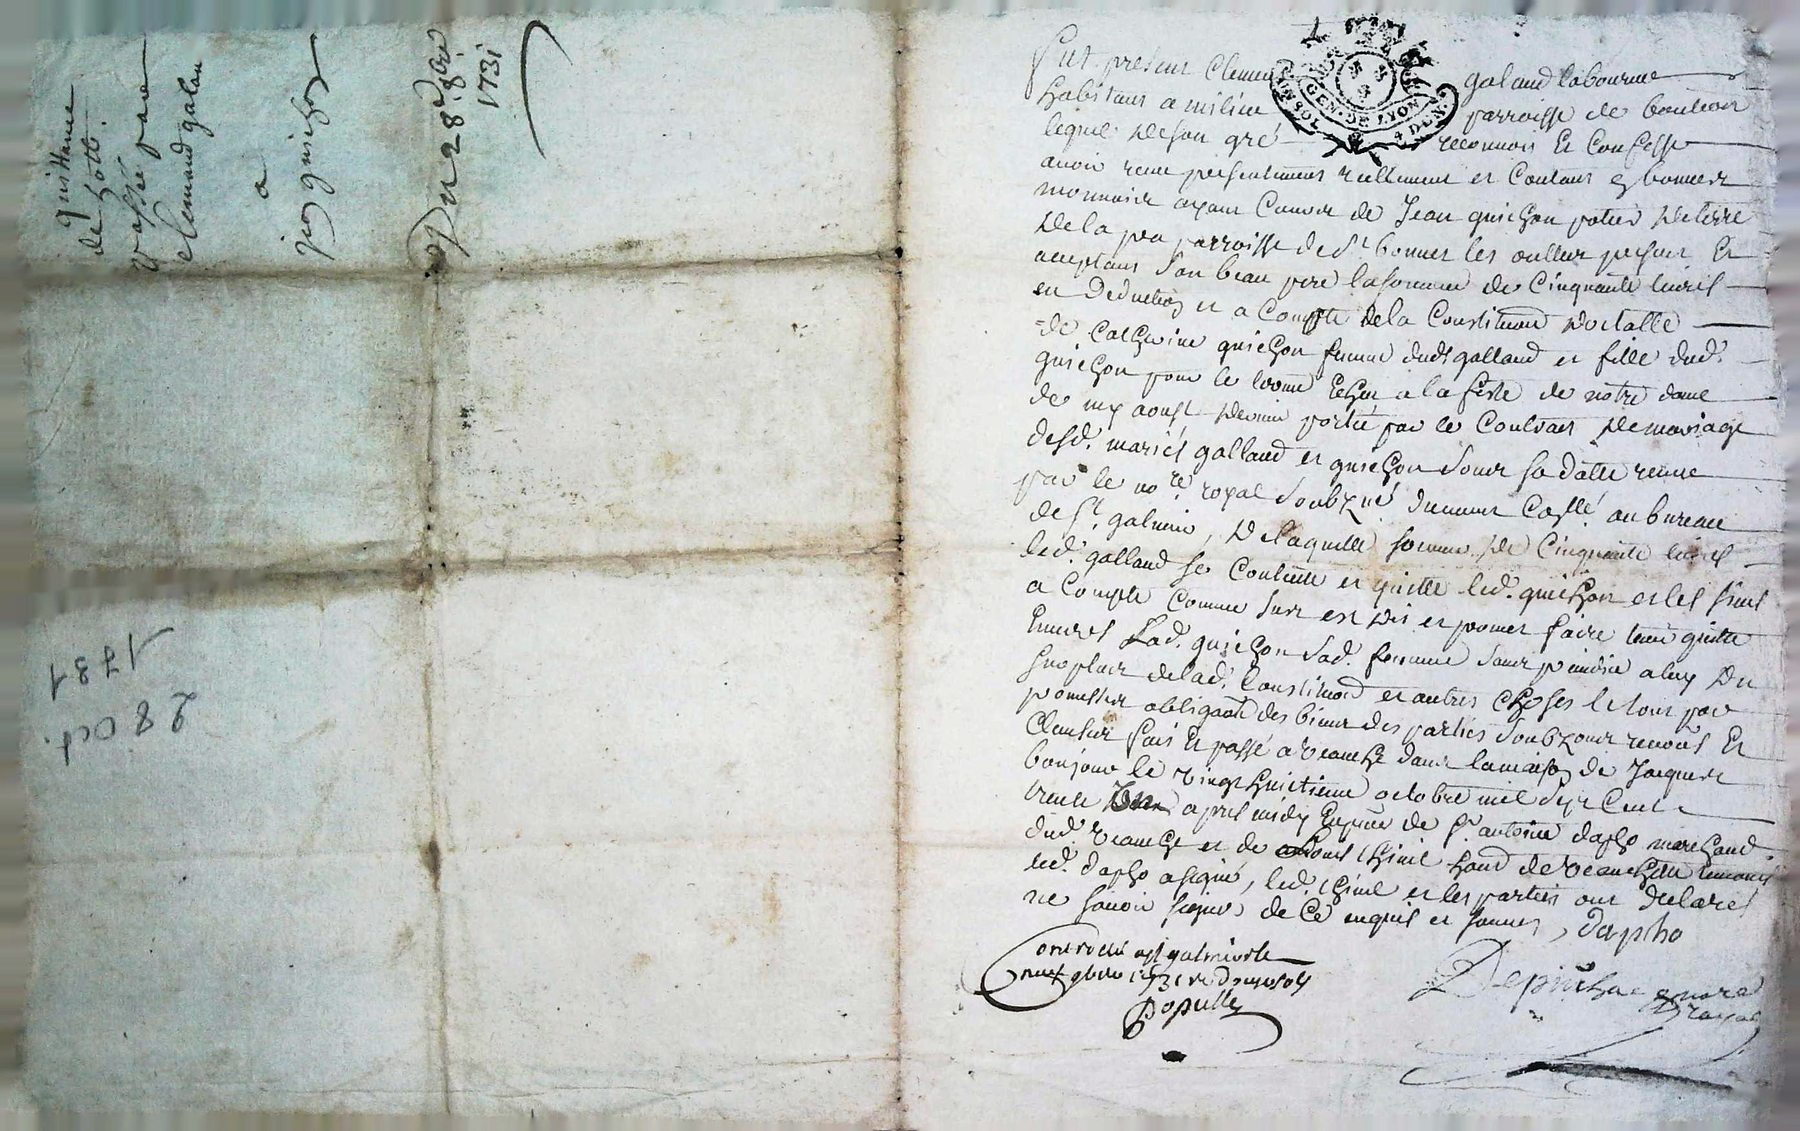 quittance
de 50tt.
passée par
clemand galan
a
jean guichon
Du 28e 8bre
1731
28 oct.
1731
GEN. DE LYON
4 DEN.
fut present Clemen galand laboureur
habitant a milieu parroisse de
lequel de son gré reconnoit et confesse
avoir receu presentement reellement et contant en bonne
monnoie ayant cours de Jean guichon potier de terre
de la parroisse de St bonnet les oulles present et
acceptant son beau pere la somme de cinquante livres
en deduction et a compte de la constitution dotalle
de catherine guichon femme dudt galland et fille dud.
guichon pour le terme echeu a la feste de notre dame
de my aoust dernier portée par le contrat de mariage
desd. mariés galland et guichon sous sa datte receu
par le no.re royal soubzné controllé au bureau
de St. galmier, De laquelle somme de cinquante livres
led. galland se contente et quitte led. guichon et les siens
a compte comme sus est dit et promet faire tenir quitte
envers lad. guichon sad. femme sans prejudice a luy du
surplus de lad. constitution et autres choses le tout par
promesse obligaon des biens des parties soubz renons et
clauses fait et passé a veauche dans la maison de Jacques
bonjour le vingt huitieme octobre mil sept cent
trente un apres midy en pnce de Sr. antoine dapho marchand
dud. veauche et de hand de veauche temoins
led. dapho a signé, led. et les parties ont declarés
ne savoir signer de ce enquis et sommés, dapho
controllé a St galmier le
neuf 9bre 1731 re douze sols
Populle
Depinhac nore
royal